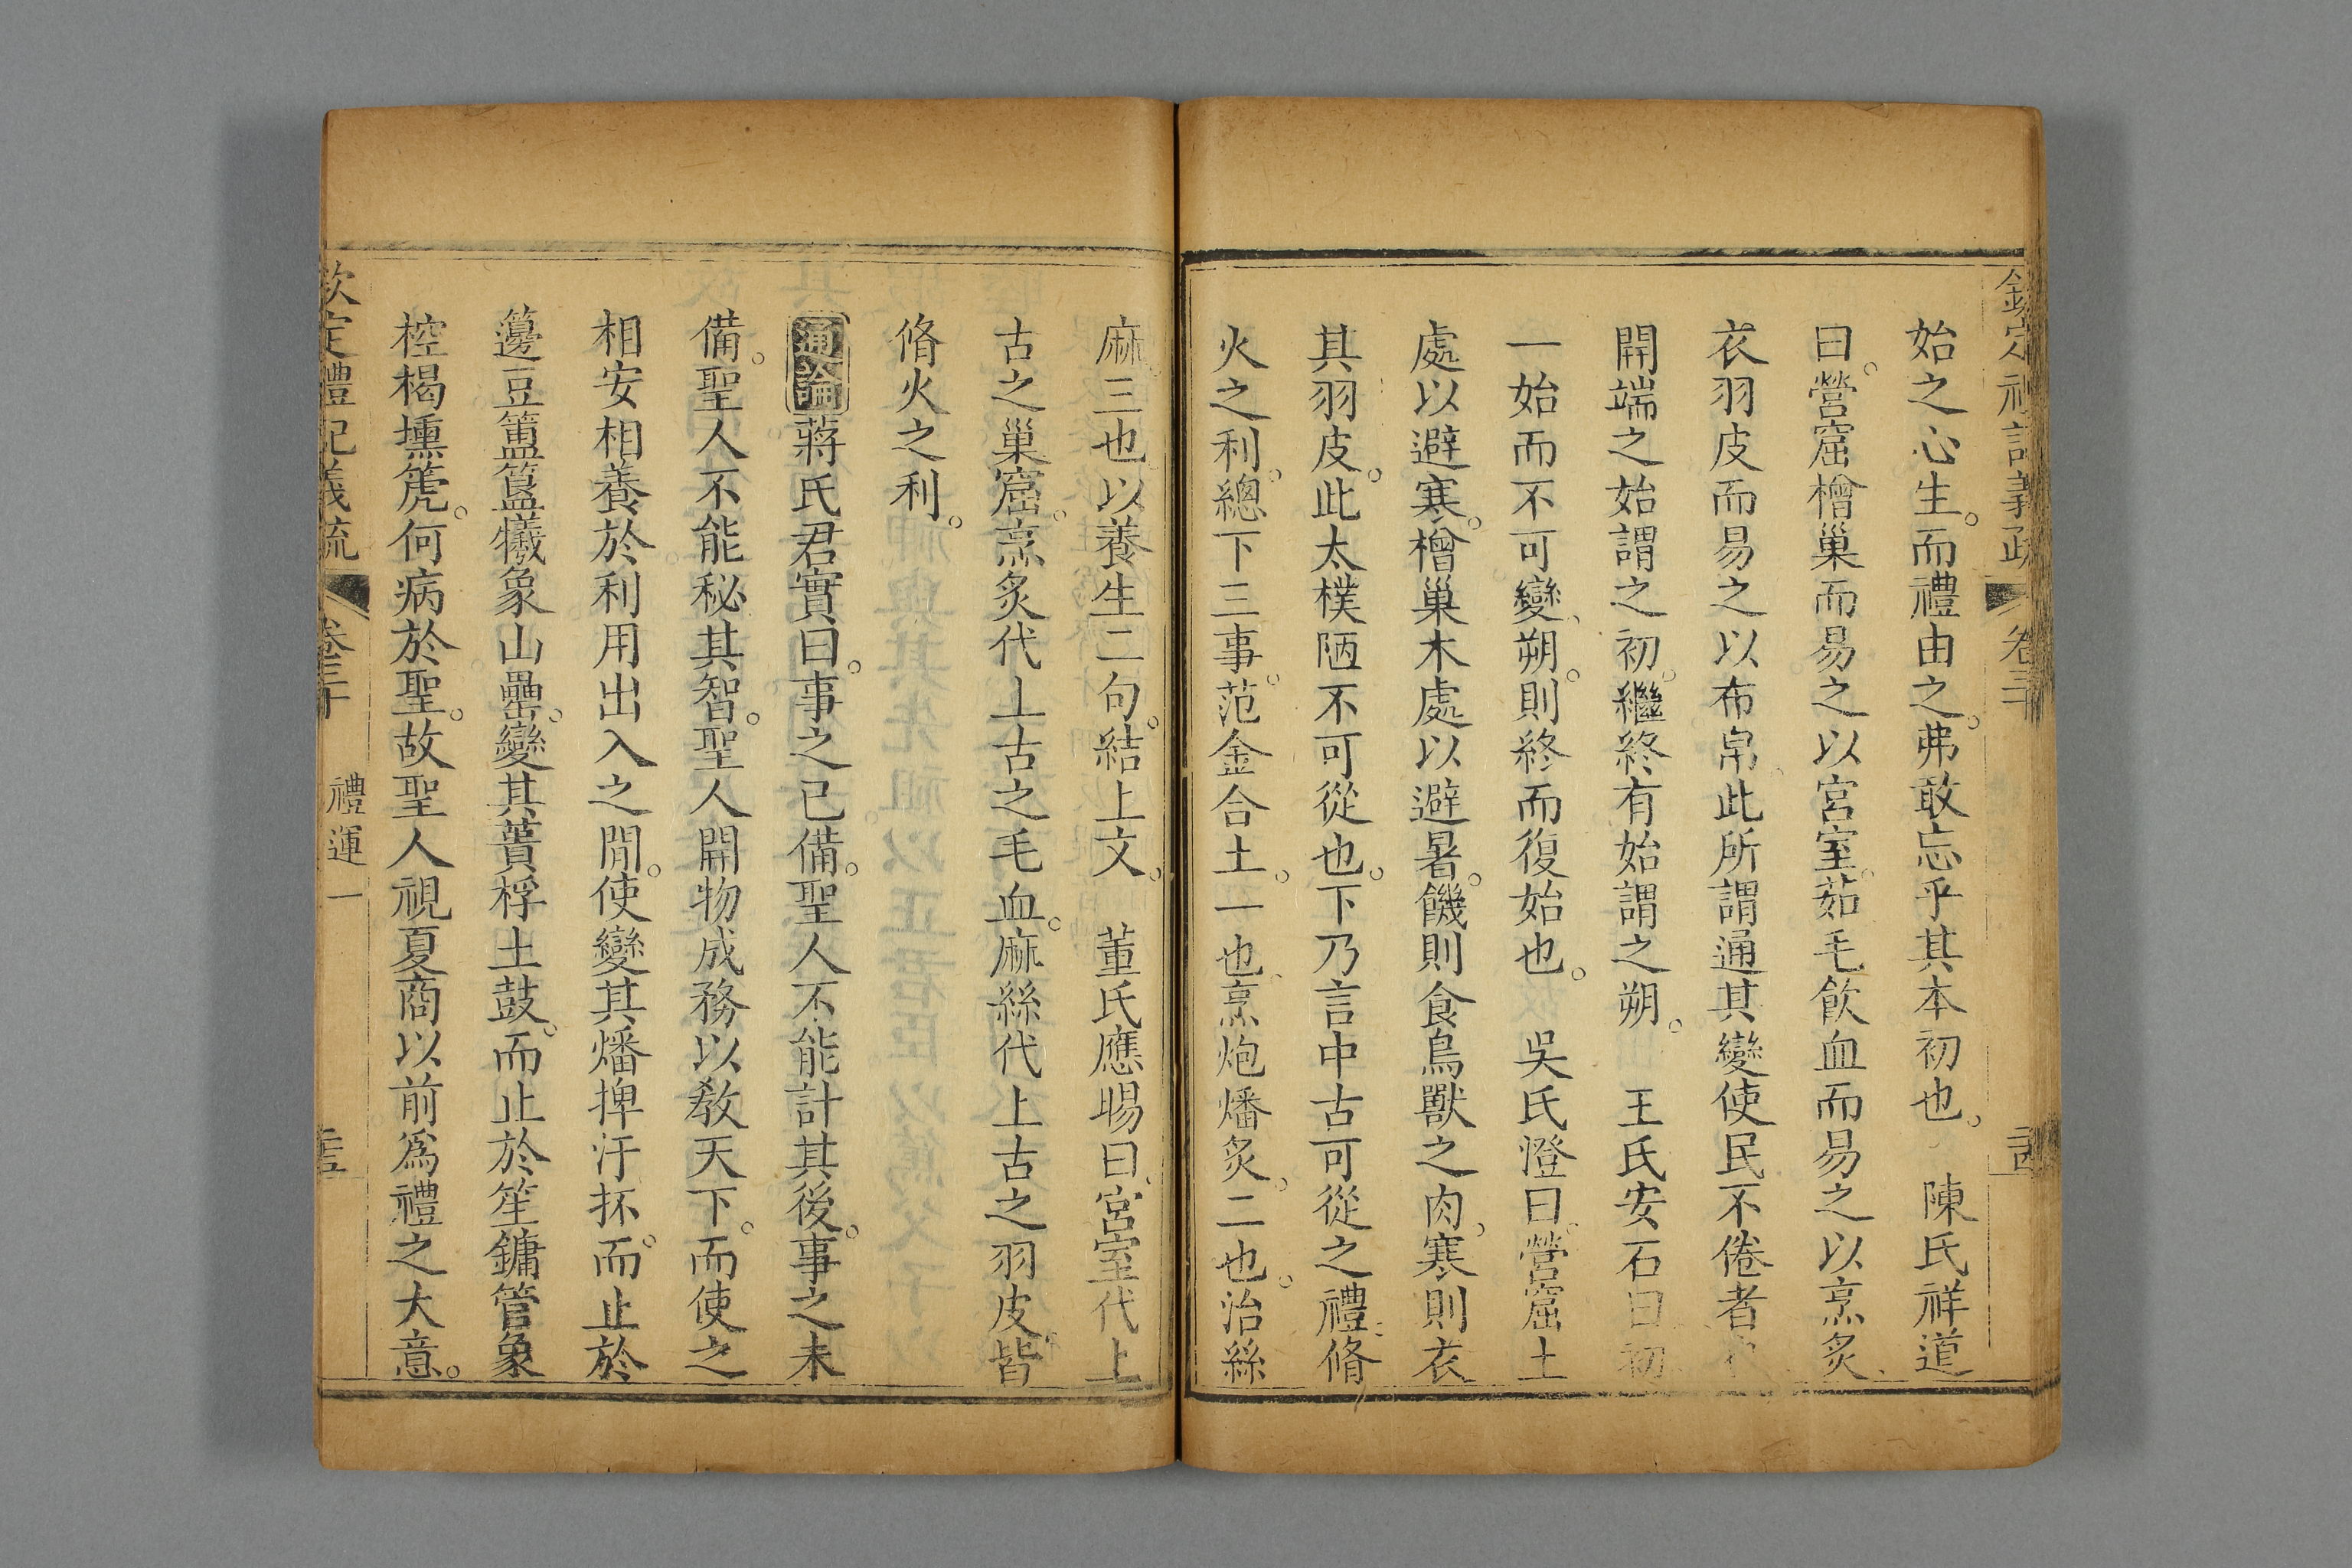 始之心生。而禮由之。弗敢忘乎其本初也。　陳氏祥道
曰。營窟檜巢而易之以宮室。茹毛飲血而易之以烹炙、
衣羽皮而易之以布帛、此所謂通其變使民不倦者
開端之始謂之初。繼終有始謂之朔。　王氏安石曰初
一始而不可變、朔。則終而復始也。　吳氏澄曰。營窟土
處以避寒。檜巢木處以避暑。饑則食鳥獸之肉、寒則衣
其羽皮。此太樸陋不可從也。下乃言中古可從之禮、脩
火之利。總下三事。范金合土。一也、烹炮燔炙。二也。治絲
麻。三也。以養生二句。結上文。　董氏應暘曰、宮室代上
古之巢窟。烹炙代上古之毛血。麻絲代上古之羽皮、皆
脩火之利。
通論蔣氏君實曰。事之已備。聖人不能計其後。事之未
備。聖人不能秘其智。聖人開物成務以敎天下。而使之
相安相養於利用出入之閒。使變其燔捭汙抔。而止於
籩豆簠簋犧象山罍。變其蕢桴土鼓。而止於笙鏞管象
椌楬壎箎。何病於聖。故聖人視夏商以前爲禮之大意。
欽定禮記義疏　卷三十　禮運一